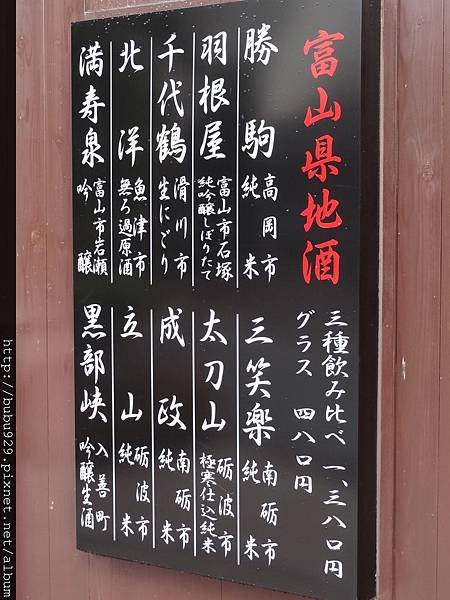 富山県地酒
三種飲み比べ 一、三八〇円
グラス 四八〇円
勝駒 高岡市 純米
羽根屋 富山市石塚 純吟醸しぼりたて
千代鶴 滑川市 生にごり
北洋 魚津市 無ろ過原酒
満寿泉 富山市岩瀬 吟醸
三笑楽 南砺市 純米
太刀山 砺波市 極寒仕込純米
成政 南砺市 純米
立山 砺波市 純米
黒部峡 入善町 吟醸生酒
http://bubu929.pixnet.net/album